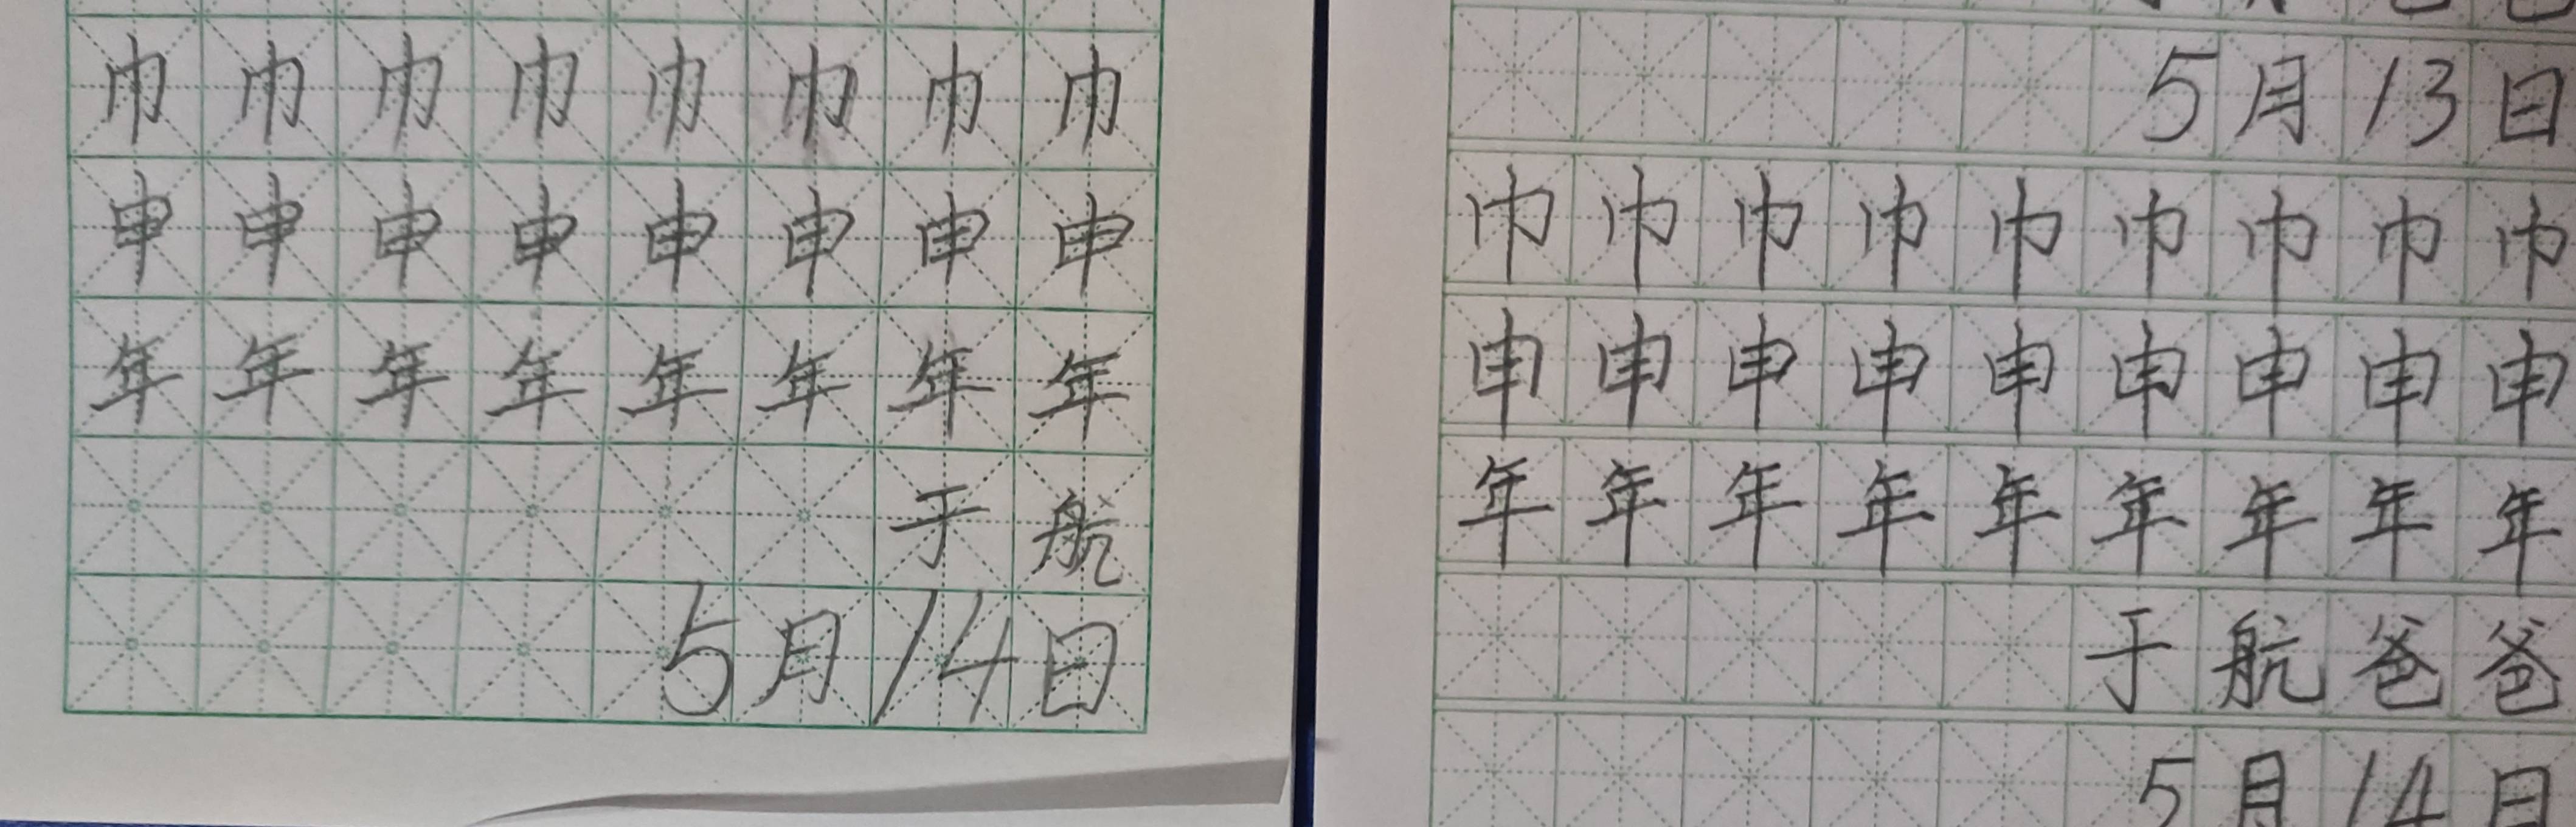 巾巾巾巾巾巾巾巾
申申申申申申申申
年年年年年年年年
于航
5月14日
5月13日
巾巾巾巾巾巾巾巾巾
申申申申申申申申申
年年年年年年年年年
于航爸爸
5月14日